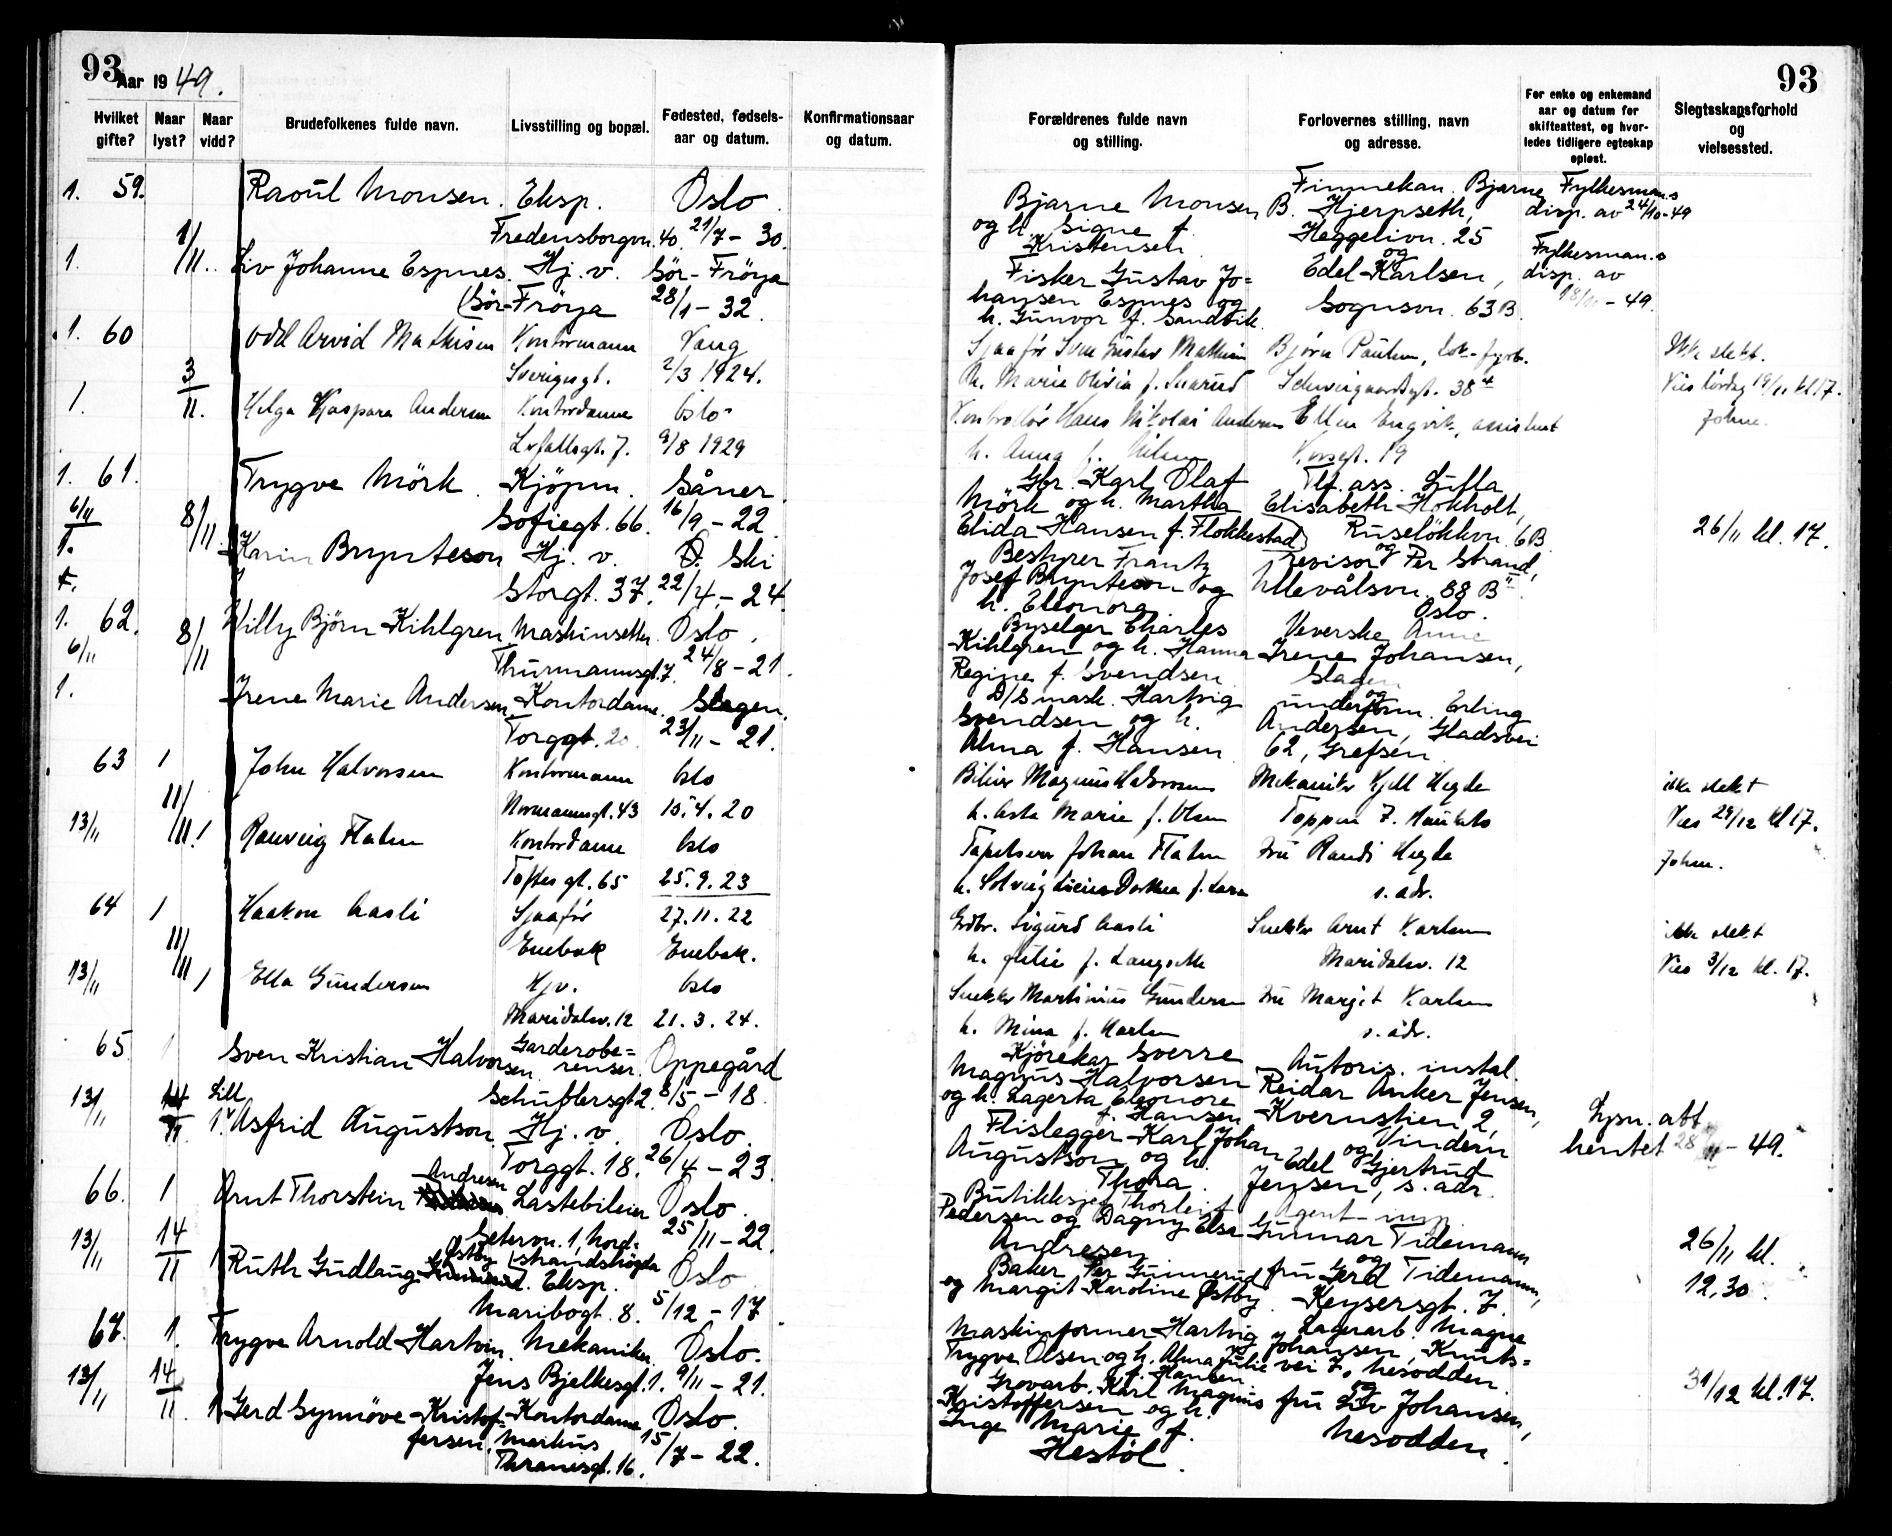 93
Aar 1949.
Hvilket gifte?
Naar lyst?
Naar vidd?
Brudefolkenes fulde navn.
Livsstilling og bopæl.
Fødested, fødsels-
aar og datum.
Konfirmationsaar
og datum.
1. 59. Raoul Monsen. Eksp. Oslo.
Fredensborgvn. 40. 21/7 - 30.
1. 1/11. Liv Johanne Espnes. Hj. v. Sör-Fröya
(Sör-Fröya 28/1 - 32.
1. 60 Odd Arvid Mathisen Kontormann Vang
3/11. Sverigesgt. 2/3 1924.
1. Helga Kaspara Andersen Kontordame Oslo
Lofallsgt. 7. 9/8 1929
1. 61. Trygve Mörk. Kjöpm. Såner.
6/11 8/11 Sofiegt. 66. 16/9 - 22.
1. Karin Brynteson Hj. v. Ski
Storgt. 37. 22/4 - 24
1. 62. Willy Björn Kihlgren Maskinsetter. Oslo.
6/11 8/11 Thurmannsgt. 7. 24/8 - 21.
1. Irene Marie Andersen Kontordame. Slagen.
Torggt. 20. 23/11 - 21.
63 1 John Halvorsen Kontormann Oslo
11/11 Normannsgt. 43 15.4.20
13/11 1 Rauveig Flaten Kontordame Oslo
Toftes gt. 65 25.9.23
64 1 Haakon Aasli Sjaafør 27.11.22
11/11 Enebak Enebak.
13/11 1 Ella Gundersen Hjv. Oslo
Maridalsv. 12 21.3.24.
65. 1 Sven Kristian Halvorsen Garderobe=
renser. Oppegård
13/11 14/11 Schüblersgt 2. 8/5 - 18.
Lill
1. Astrid Augustson. Hj. v. Oslo.
Torggt. 18. 26/4 - 23.
66. 1 Arnt Thorstein Andresen Lastebileier Oslo.
13/11 14/11 Setervn. 1, Nord=
strandshögda 25/11 - 22.
1 Ruth Gudlaug Østby Eksp. Oslo
Maribogt. 8. 5/12 - 17.
67. 1. Trygve Arnold Hartvin. Mekaniker Oslo.
13/11 14/11 Jens Bjelkesgt. 1. 9/11 - 21.
1 Gerd Synnöve Kristof=
fersen. Kontordame Oslo.
Markus
Thranesgt. 16. 15/7 - 22.
93
Forældrenes fulde navn
og stilling.
Forlovernes stilling, navn
og adresse.
For enke og enkemand
aar og datum for
skifteattest, og hvor-
ledes tidligere egteskap
opløst.
Slegtsskapsforhold
og
vielsessted.
Bjarne Monsen
og h. Signe f.
Kristensen
Finnekan. Bjarne
B. Hjerpseth,
Heggelivn. 25
og
Fylkesman.s
disp. av 24/10-49
Fisker Gustav Jo=
hansen Espnes og
h. Gunvor f. Sandvik.
Edel Karlsen,
Sognsvn. 63 B.
Fylkesman.s
disp. av
18/10 - 49.
Sjaafør Sven Gustav Mathisen Bjørn Paulsen, lok-fyrb. Ikke slekt.
h. Marie Olivia f. Svarud Schweigaardsgt. 38 4 Vies lørdag 19/11 kl 17.
Kontrollør Hans Nikolai Andersen Ellen Engvik, assistent Johne.
h. Anna f. Nilsen Korsgt. 19
Gbr. Karl Olaf
Mörk og h. Martha
Elida Hansen f. Flokkestad)
Tlf. ass. Luffa
Elisabeth Hokholt,
Ruselökkvn. 6B.
og
26/11 kl. 17.
Bestyrer Frantz
Josef Brynteson og
h. Eleonora.
revisor Per Strand,
Ullevålsvn. 88 B II
Oslo.
Byselger Charles
Kihlgren og h. Hanna
Regine f. Svendsen.
Veverske Anne
Irene Johansen,
Slagen
og
D/S mask. Hartvig
Svendsen og h.
Alma f. Hansen
underform. Erling
Andersen, Gladsvei
62, Grefsen.
Bileier Magnus Halvorsen Mekaniker Kjell Hegde ikke slekt
h. Asta Marie f. Olsen Toppen 7. Haukets Vies 29/12 kl 17.
Tapetserer Johan Flaten Fru Randi Hegde Johne.
h. Solveig Lucie Dorthea f. Lara s. adr.
Grdbr. Sigurd Aasli Snekker Arnt Karlsen ikke slekt
h. Julie f. Langseth Maridalsv. 12 Vies 3/12 kl. 17.
Snekker Martinius Gundersen Fru Margit Karlsen
h. Mina f. Karlsen s. adr.
Kjörekar Sverre
Magnus Halvorsen
og h. Lagerta Eleonore
f. Hansen
Autoris. instal.
Reidar Anker Jensen,
Kvernstien 2,
Vindern
og
Lysn. att.
hentet 28/11 - 49.
Flislegger Karl Johan
Augustson og h.
Thora.
Edel Gjertrud
Jensen, s. adr.
Butikksjef Thorleif
Pedersen og Dagny Elsa
Andresen.
Agent
Gunnar Tidemann
og
26/11 kl.
12,30.
Baker Per Gunnerud
og Margit Karoline Østby.
fru Gerd Tidemann,
Keysersgt. 7.
Maskinformer Hartvig
Trygve Olsen og h. Alma Julie
f. Hansen.
Lagerarb. Magne
Johansen, Knuts=
vei 7, Nesodden.
og
31/12 kl. 17.
Grovarb. Karl Magnus
Kristoffersen og h.
Inge Marie f.
Hestöl.
fru Liv Johansen,
Nesodden.